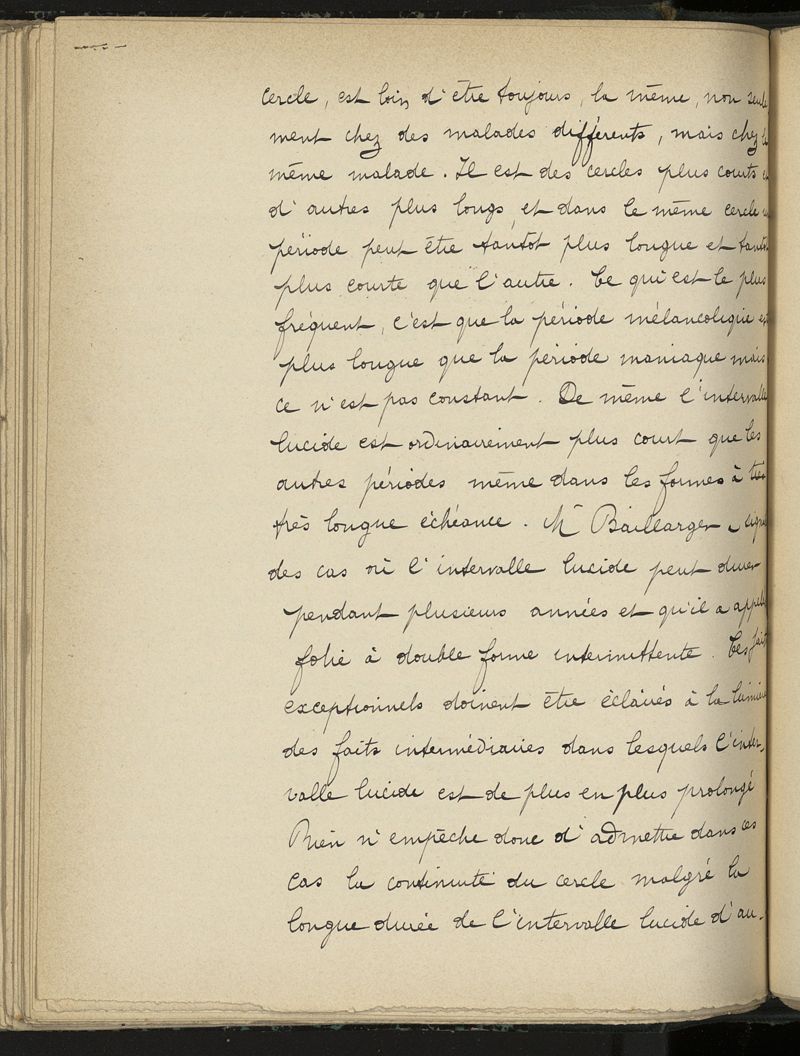 cercle, est loin d'être toujours, la même, non seule
ment chez des malades différents, mais chez le
même malade. Il est des cercles plus courts
d'autres plus longs, et dans le même cercle
période peut être tantôt plus longue et tantôt
plus courte que l'autre. Ce qui est le plus
fréquent, c'est que la période mélancolique est
plus longue que la période maniaque mais
ce n'est pas constant. De même l'intervalle
lucide est ordinairement plus court que les
autres périodes même dans les formes à
très longue échéance. Mr Baillarger a signa
des cas où l'intervalle lucide peut durer
pendant plusieurs années et qu'il a appelé
folie à double forme intermittente. Ces faits
exceptionnels doivent être éclairés à la lumière
des faits intermédiaires dans lesquels l'inter-
valle lucide est de plus en plus prolongé
Rien n'empêche donc d'admettre dans ces
cas la continuité du cercle malgré la
longue durée de l'intervalle lucide d'au-